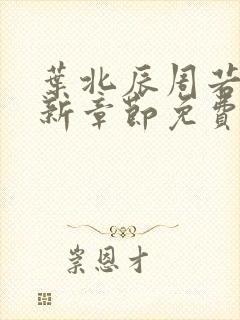 葉北辰周若
新章節免費
崇恩才